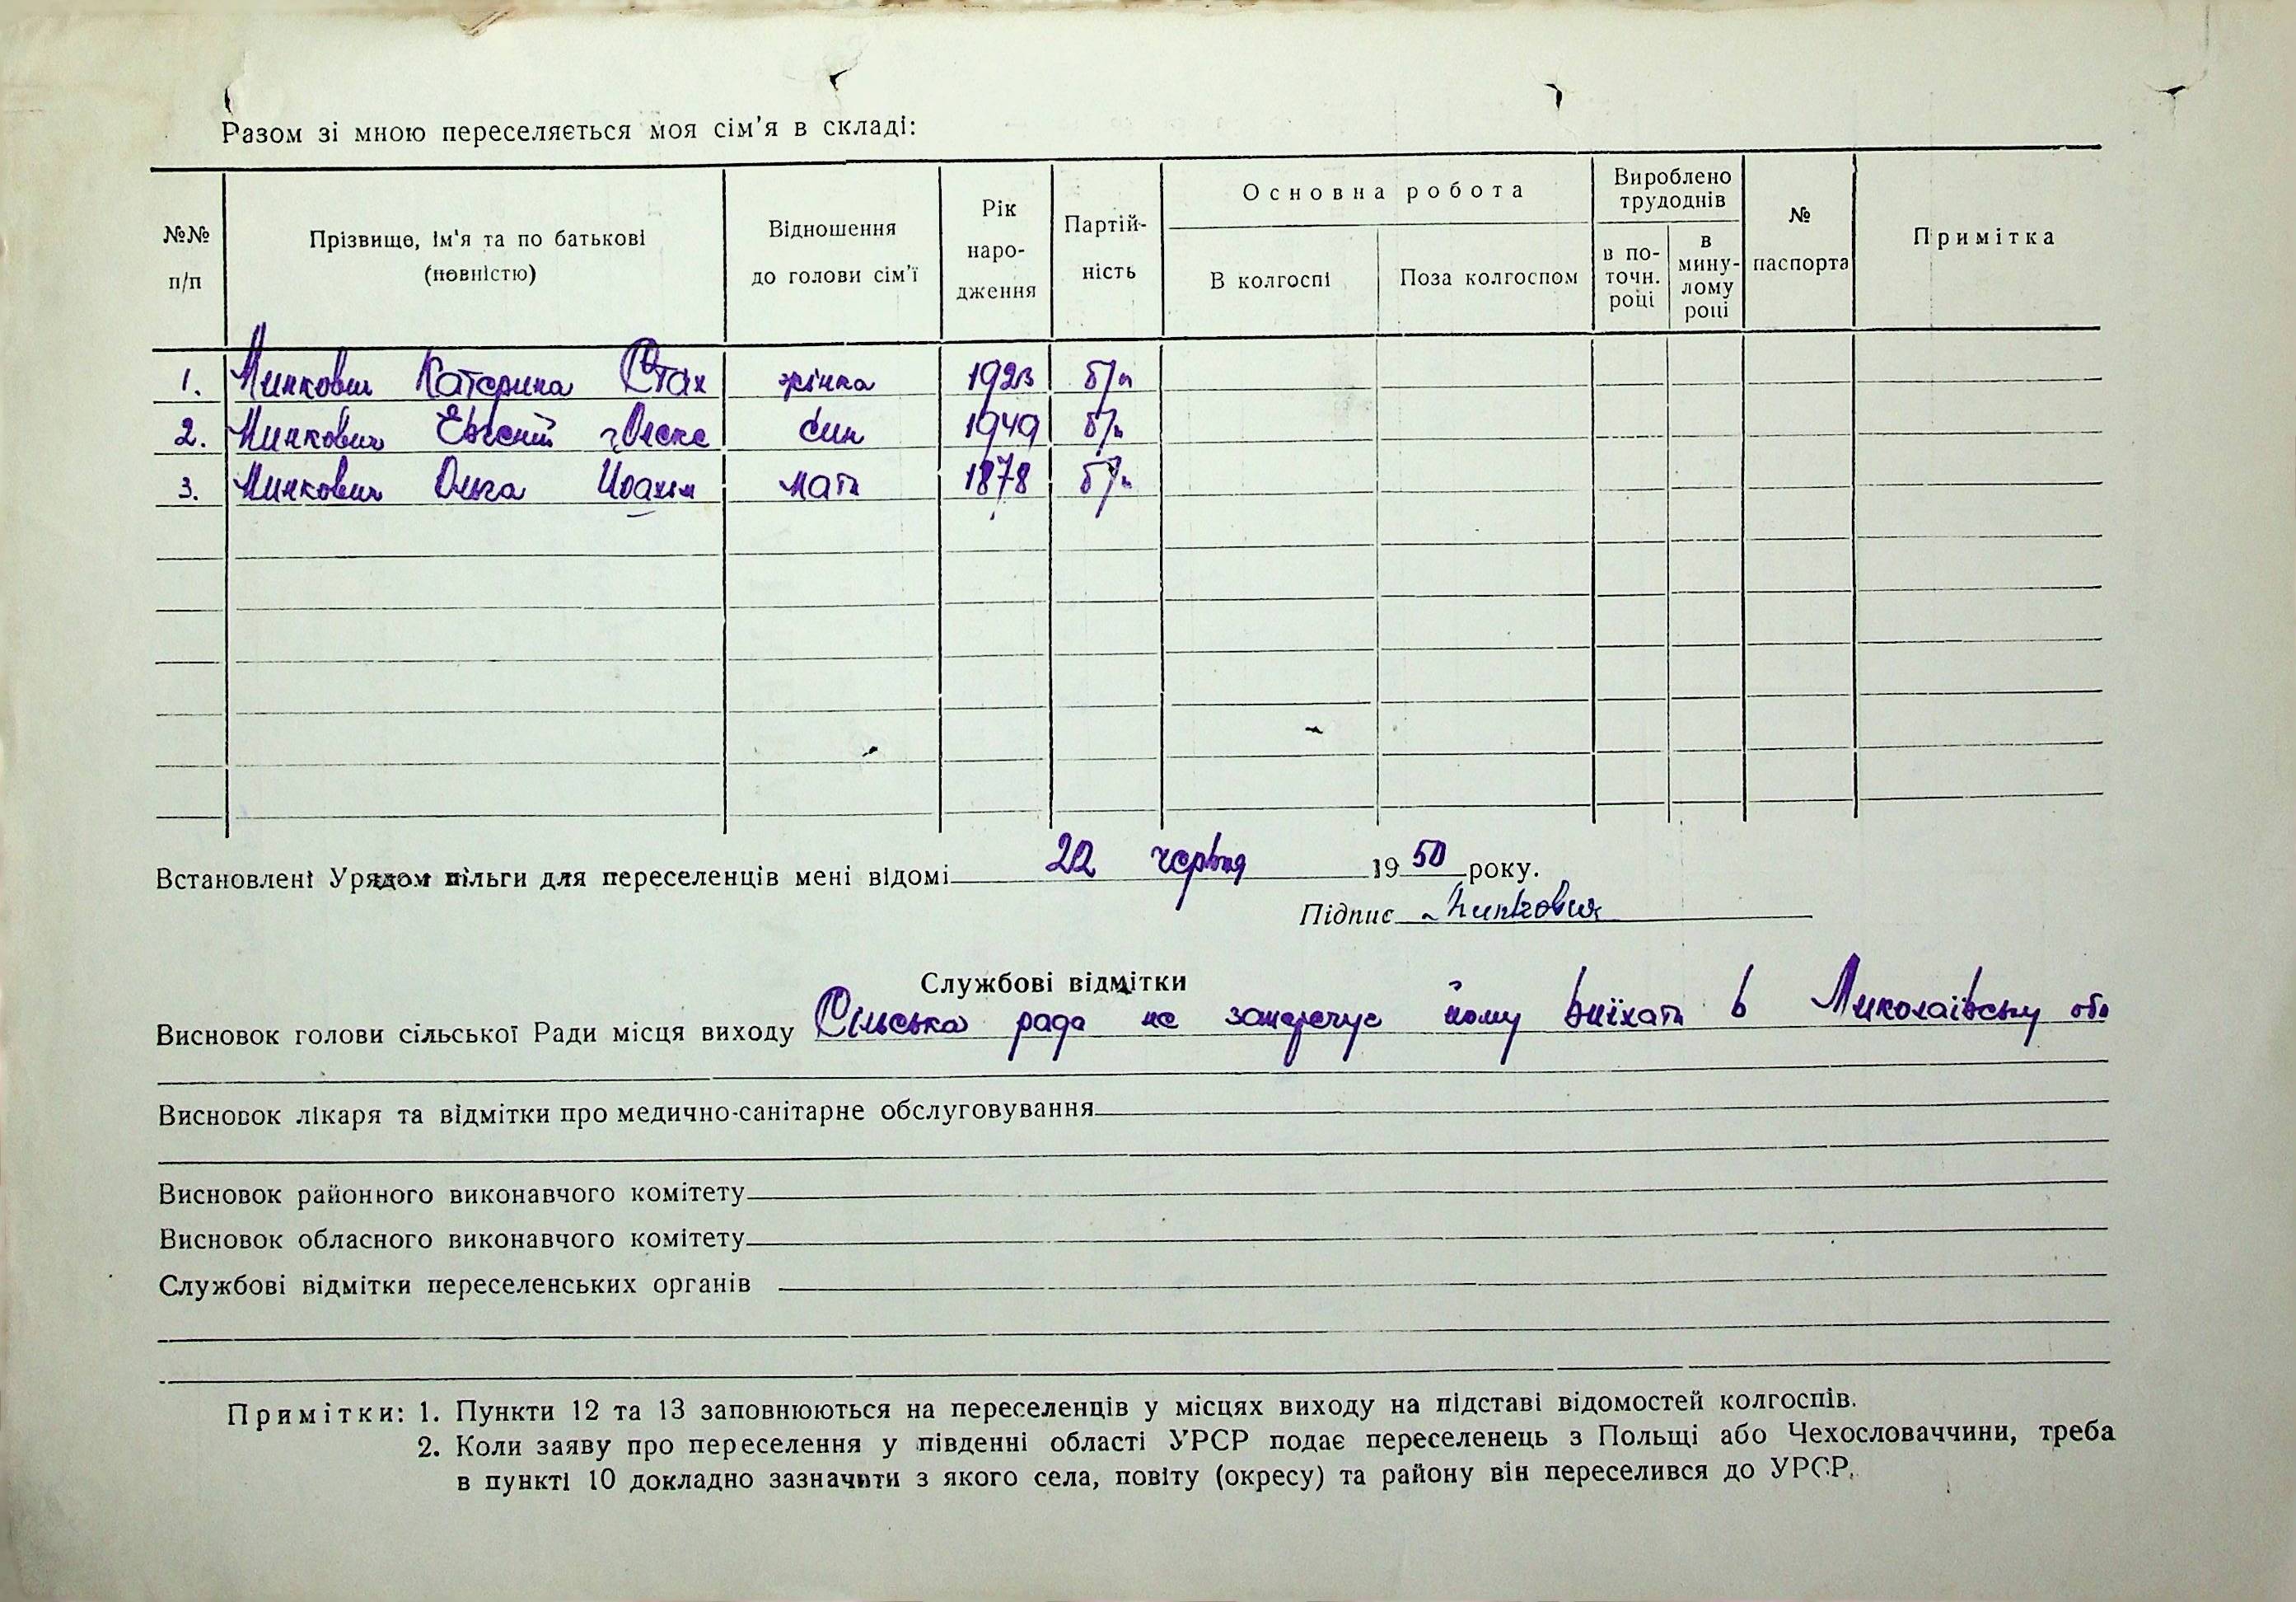 Разом зі мною переселяється моя сім'я в складі:
№№ п/п
Прізвище, ім'я та по батькові (повністю)
Відношення до голови сім'ї
Рік народження
Партійність
Основна робота
В колгоспі
Поза колгоспом
Вироблено трудоднів
в поточн. році
в минулому році
№ паспорта
Примітка
1. Минкович Катерина Стах жінка 1923 б/п
2. Минкович Евгений Олекс син 1949 б/п
3. Минкович Ольга Иоахим мати 1878 б/п
Встановлені Урядом пільги для переселенців мені відомі 22 червня 1950 року.
Підпис Минкович
Службові відмітки
Висновок голови сільської Ради місця виходу Сільська рада не заперечує йому виїхати в Миколаївську обл
Висновок лікаря та відмітки про медично-санітарне обслуговування
Висновок районного виконавчого комітету
Висновок обласного виконавчого комітету
Службові відмітки переселенських органів
Примітки: 1. Пункти 12 та 13 заповнюються на переселенців у місцях виходу на підставі відомостей колгоспів.
2. Коли заяву про переселення у південні області УРСР подає переселенець з Польщі або Чехословаччини, треба
в пункті 10 докладно зазначити з якого села, повіту (окресу) та району він переселився до УРСР.